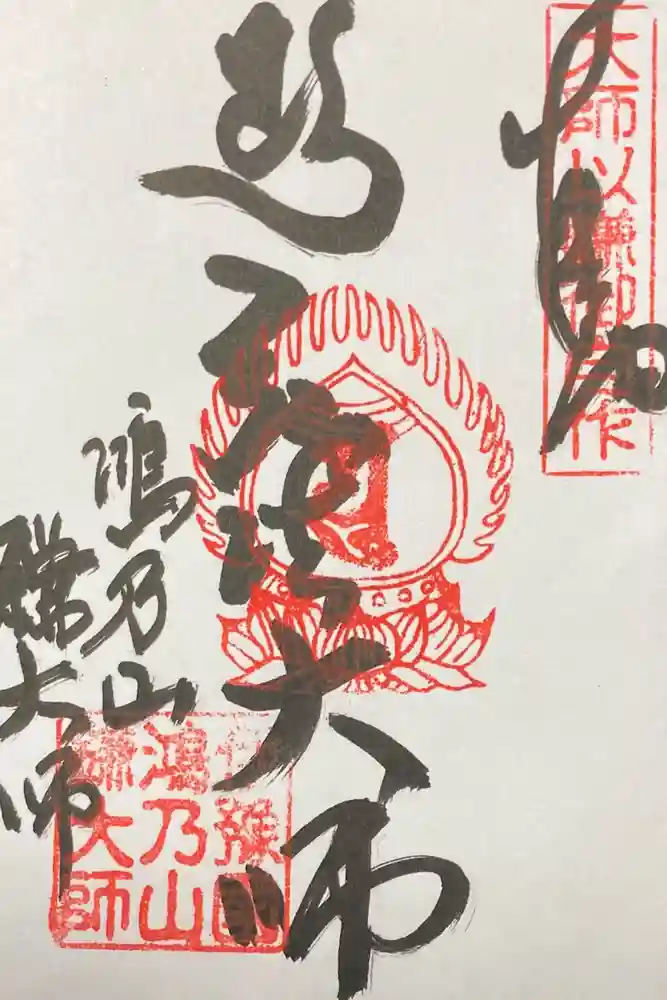 大師以鎌御自作
弘法大師
鴻乃山
鎌大師
伊豫國
鴻乃山
鎌大師